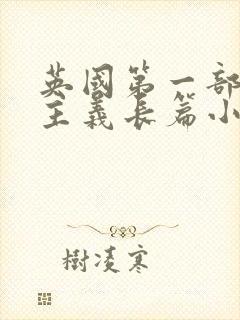 英國第一部
主義長篇小
樹凌寒